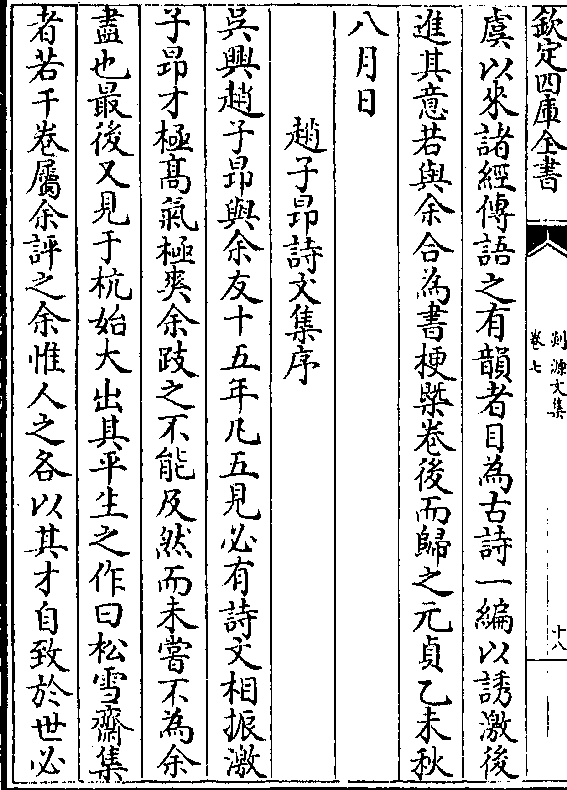 欽定四庫全書
剡源文集
卷七
十八
虞以來諸經傳語之有韻者目為古詩一編以誘激後
進其意若與余合為書梗槩卷後而歸之元貞乙未秋
八月日
趙子昂詩文集序
吳興趙子昂與余友十五年凡五見必有詩文相振激
子昂才極髙氣極爽余跂之不能及然而未嘗不為余
盡也最後又見于杭始大出其平生之作曰松雪齋集
者若干卷屬余評之余惟人之各以其才自致於世必